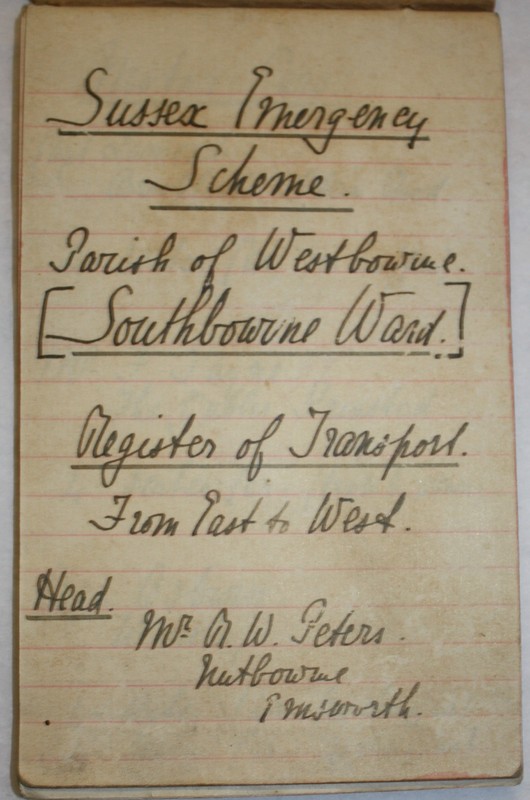 Sussex Emergency
Scheme.
Parish of Westbourne.
[Southbourne Ward.]
Register of Transport.
From East to West.
Head.
Mr. R. W. Peters.
Nutbourne
Emsworth.